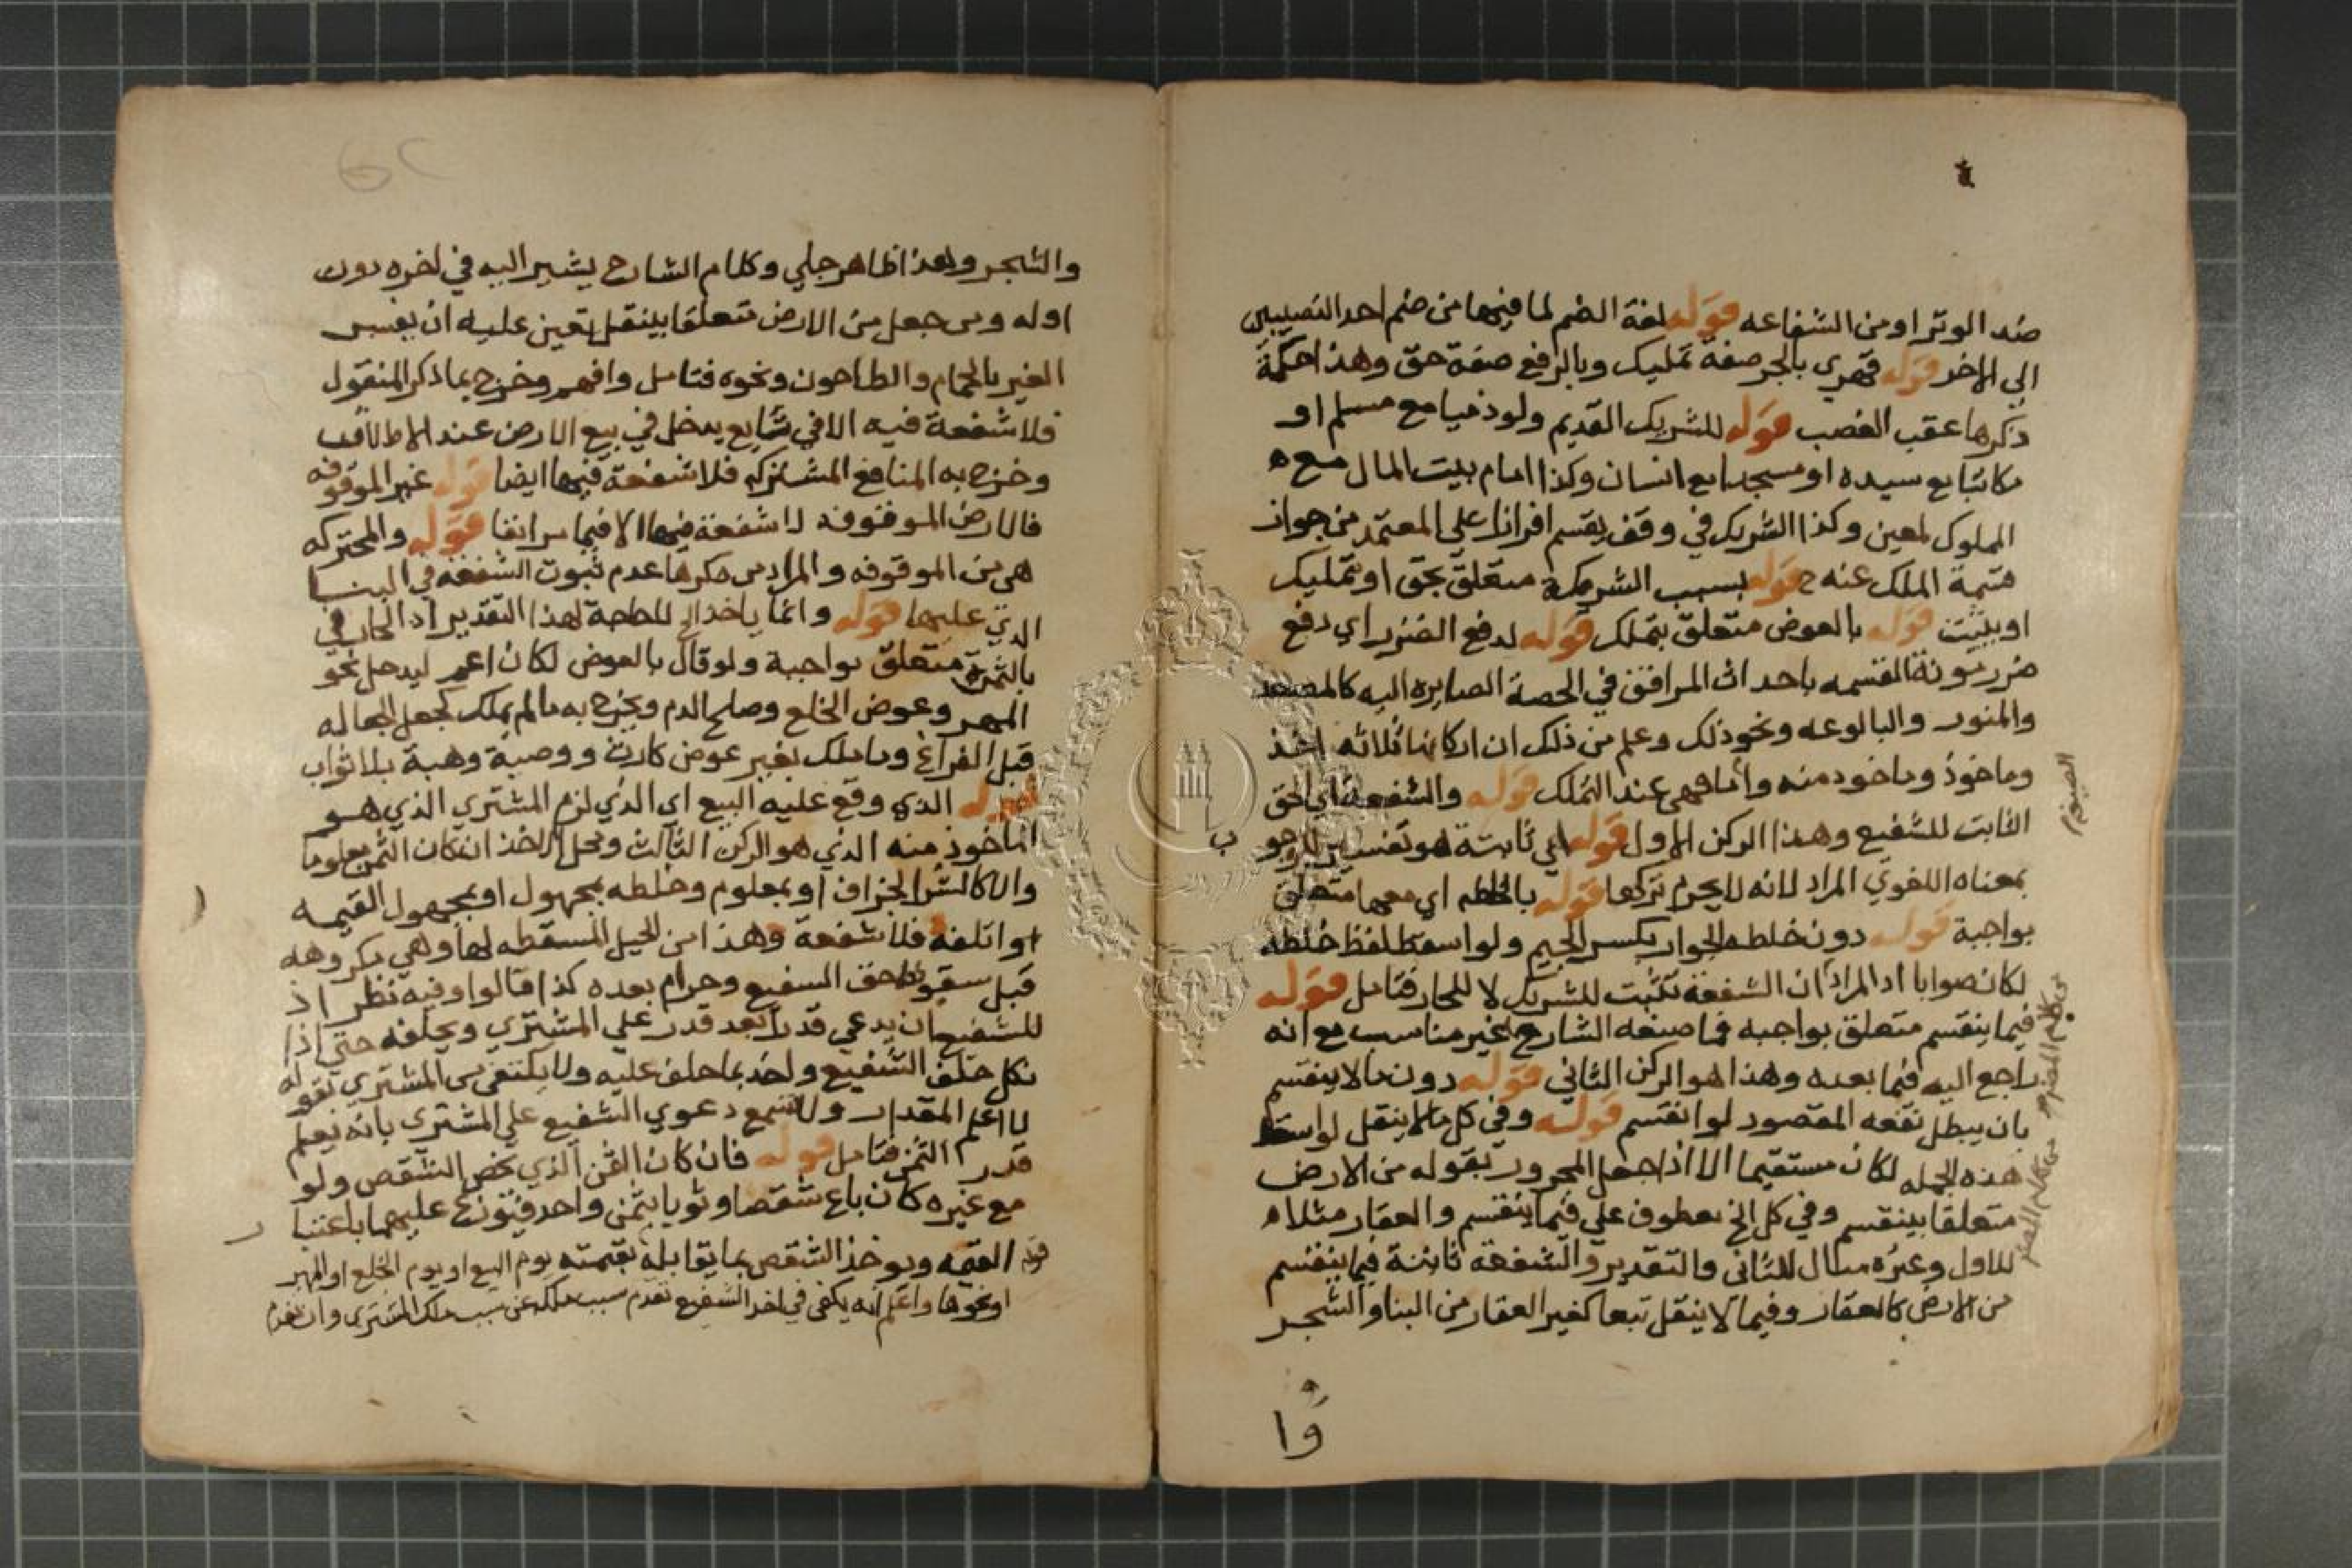 ضد الوتر او من الشفاعه قوله لغة الضم لما فيها من ضم احد النصيبين
الي الاخر قوله قهري بالجر صفة تمليك وبالرفع صفة حق وهذا حكمة
ذكرها عقب الغصب قوله للشريك القديم ولو ذميا مع مسلم او
مكاتبا مع سيده او مسجدا مع انسان وكذا امام بيت المال مع ه
المملوك لمعين وكذا الشريك في وقف يقسم افرازا علي المعتمد من جواز
قسمة الملك عنه ح قوله بسبب الشركة متعلق بحق او تمليك
او يثبت قوله بالعوض متعلق بتملك قوله لدفع الضرر اي دفع
ضرر مونة القسمه باحداث المرافق في الحصة الصايره اليه كالمصعد
والمنور والبالوعه ونحو ذلك وعلم من ذلك ان اركانها ثلاثه اخذ
وماخوذ وماخوذ منه واما فهي عند التملك قوله والشفعة اي الحق
الثابت للشفيع وهذا الركن الاول قوله اي ثابتة هو تفسير للوجوب
بمعناه اللغوي المراد لانه لا يحرم تركها قوله بالخلطه اي معها متعلق
بواجبة قوله دون خلطه الجوار بكسر الجيم ولو اسقط لفظ خلطه
لكان صوابا اذ المراد ان الشفعة تثبت للشريك لا للجار فتامل قوله
فيما ينقسم متعلق بواجبه فما صنعه الشارح غير مناسب مع انه
راجع اليه فيما بعده وهذا هو الركن الثاني قوله دون ما لا ينقسم
بان يبطل نفعه المقصود لو انقسم قوله وفي كل ما لا ينقل لو اسقط
هذه الجمله لكان مستقيما الا اذا جعل المجرور بقوله من الارض
متعلقا بينقسم وفي كل الخ معطوف علي فيما ينقسم والعقار مثلا ه
للاول وغيره مثال للثاني والتقدير والشفعة ثابتة فيما ينقسم
من الارض كالعقار وفيما لا ينقل تبعا كغير العقار من البنا والشجر
والشجر وهذا ظاهر جلي وكلام الشارح يشير اليه في اخره دون
اوله ومن جعل من الارض متعلقا بينقل تعين عليه ان يفسر
الغير بالحمام والطاحون ونحوه فتامل وافهم وخرج بما ذكر المنقول
فلا شفعة فيه الا في شايع يدخل في بيع الارض عند الاطلاق
وخرج به المنافع المشتركه فلا شفعة فيها ايضا قوله غير الموقوفه
فالارض الموقوفه لا شفعة فيها الا فيما مر انفا قوله والمحتكره
هي من الموقوفه والمراد من ذكرها عدم ثبوت الشفعة في البنا
الذي عليها قوله وانما ياخذ الخ لا حاجة لهذا التقدير اذ الجار في
بالثمن متعلق بواجبة ولو قال بالعوض لكان اعم ليدخل نحو
المهر وعوض الخلع وصلح الدم ويخرج به ما لم يملك كجعل الجعاله
قبل الفراغ وما ملك بغير عوض كارث ووصية وهبة بلا ثواب
قوله الذي وقع عليه البيع اي الذي لزم المشتري الذي هو
الماخوذ منه الذي هو الركن الثالث ومحل الاخذ ان كان الثمن معلوما
والا كالشرا بجزاف او بمعلوم وخلطه بمجهول او بمجهول القيمه
او اتلفه فلا شفعة وهذا من الحيل المسقطه لها وهي مكروهه
قبل سقوط حق الشفيع وحرام بعده كذا قالوا وفيه نظر اذ
للشفيع ان يدعي قدرا بعد قدر علي المشتري ويحلفه حتي اذا
نكل حلف الشفيع واخذ بما حلف عليه ولا يكتفي من المشتري بقوله
لا اعلم المقدار ولا تسمع دعوي الشفيع علي المشتري بانه يعلم
قدر الثمن فتامل قوله فان كان الثمن الذي يخص الشقص ولو
مع غيره كان باع شقصا وثوبا بثمن واحد فيتوزع عليهما باعتبار
القيمه ويوخذ الشقص بما يقابله بقيمته يوم البيع او يوم الخلع او المهر
او نحوها واعلم انه يكفي في اخذ الشفيع تقدم سبب ملكه عن سبب ملك المشتري وان تقدم